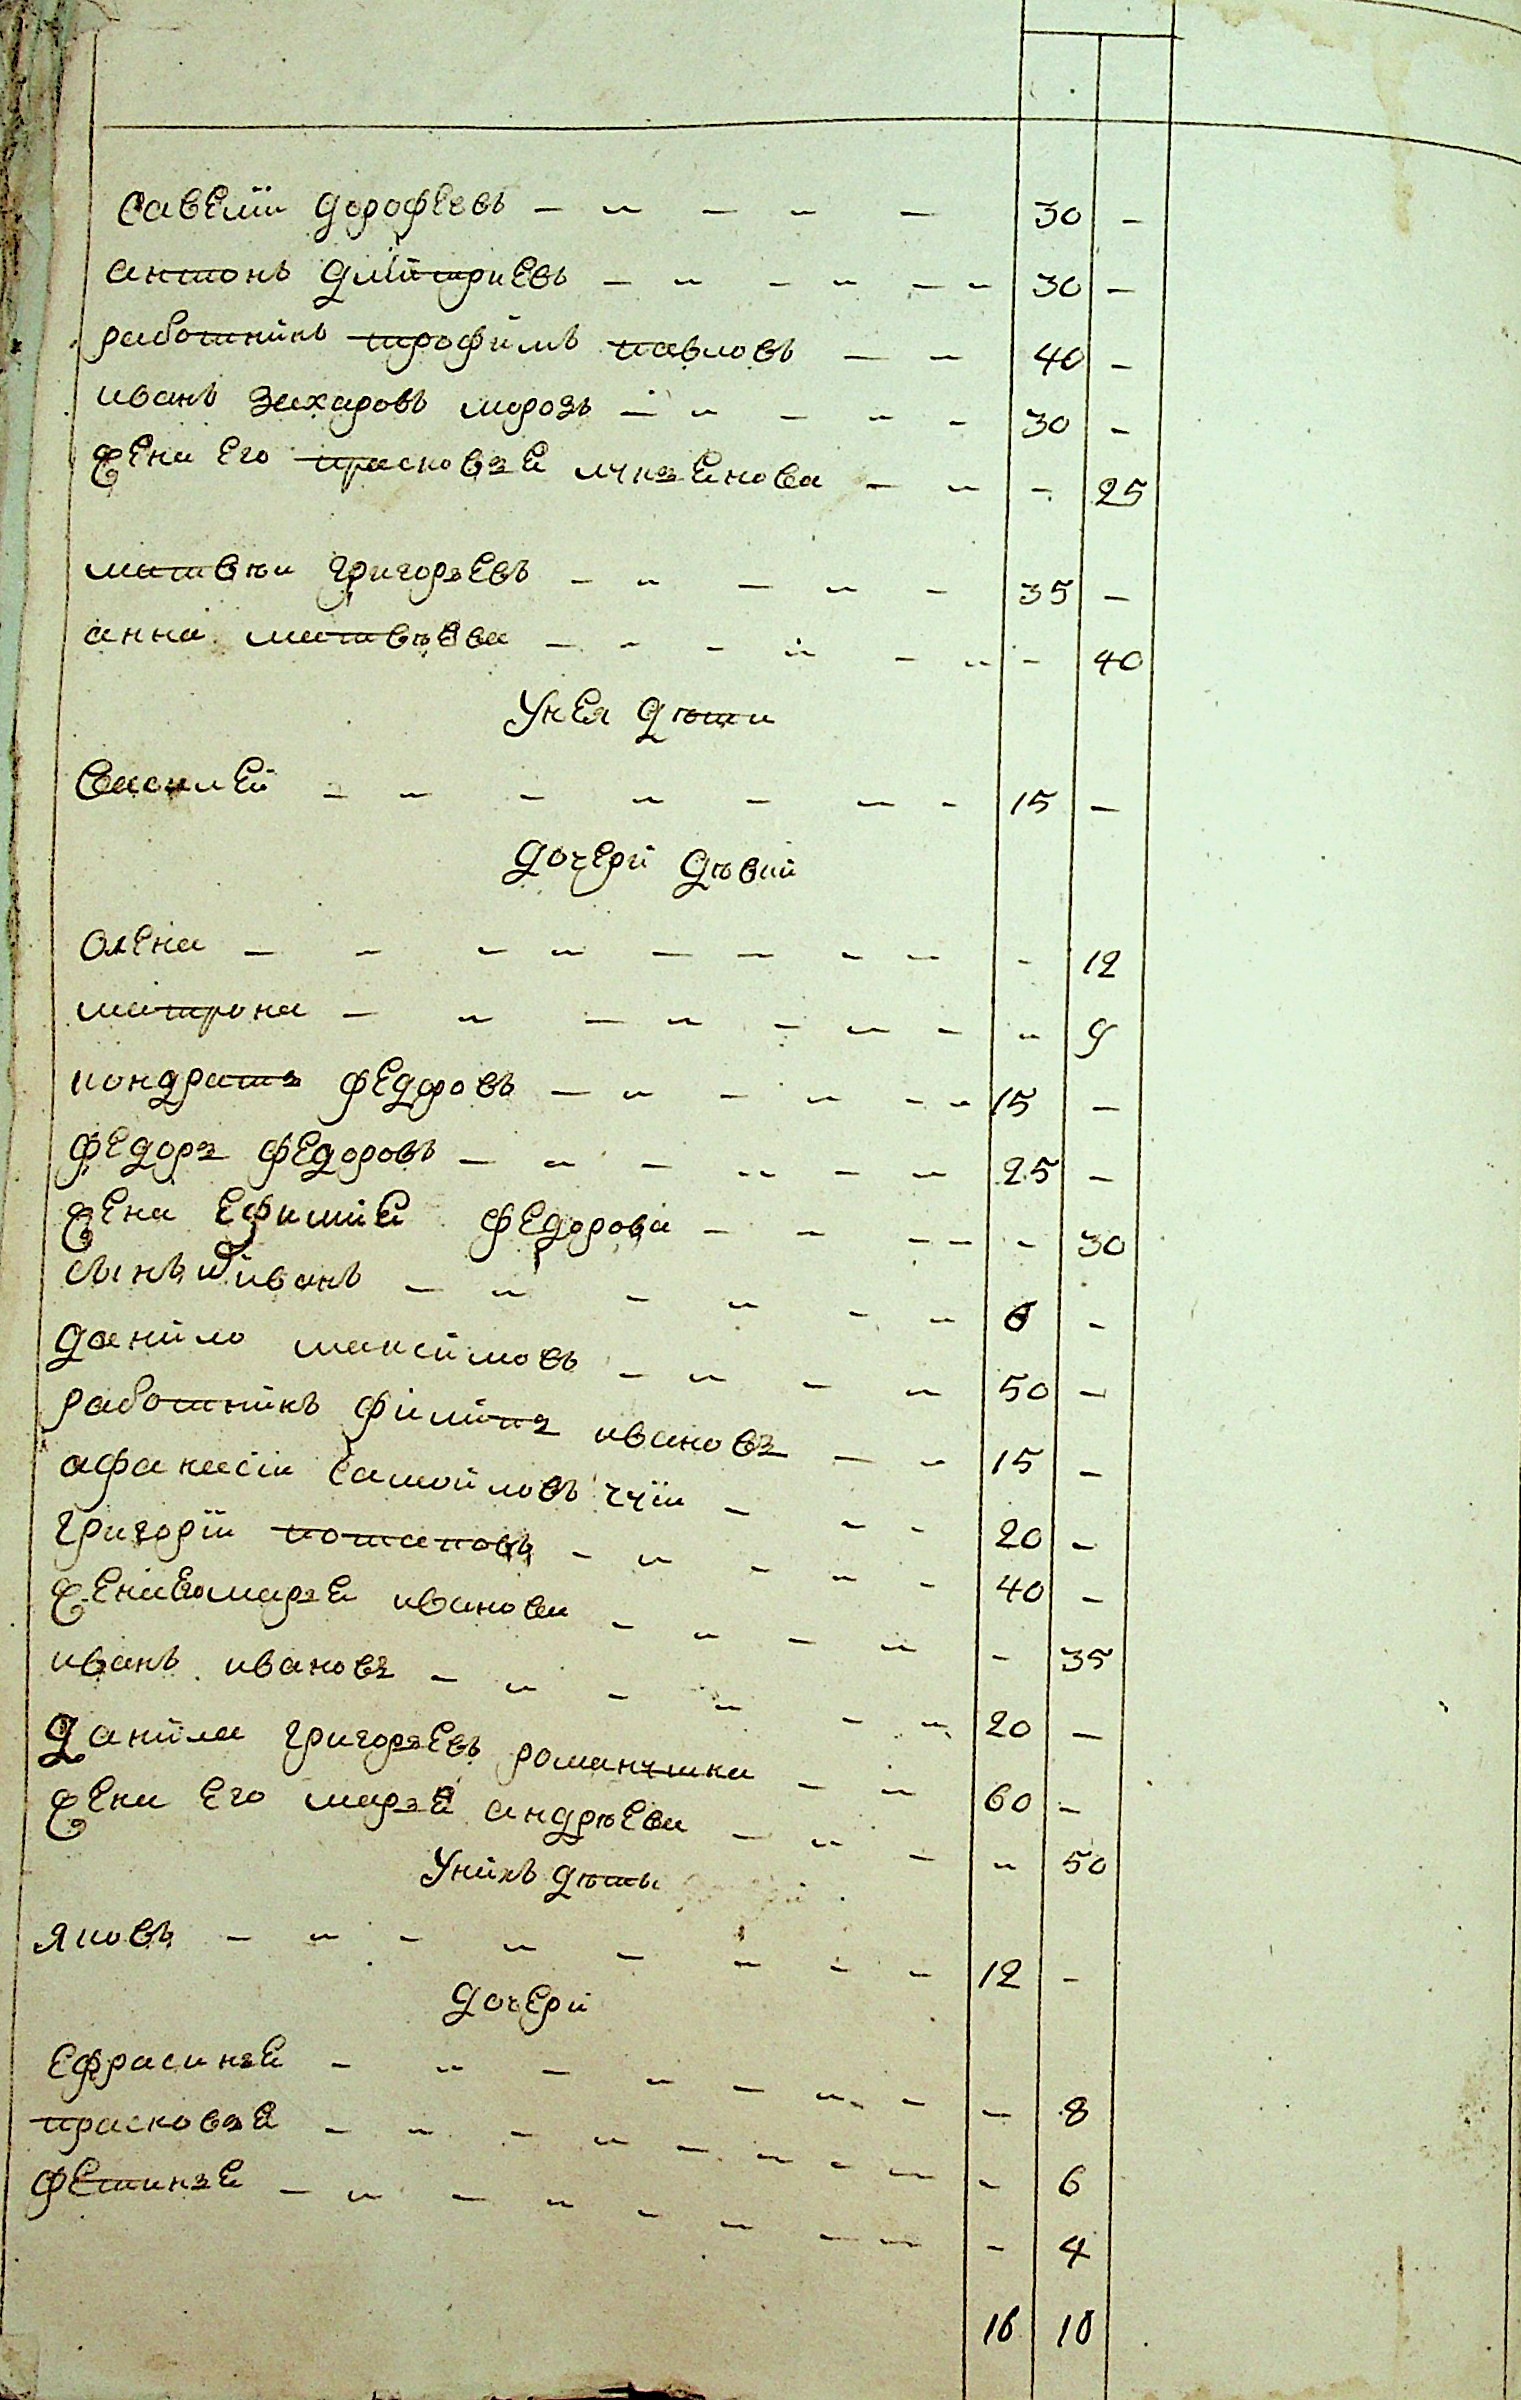 савелїи дорофеевъ — „ — „ — 30 —
антонъ дмйтриевъ — „ — „ — „ 30 —
работнйкъ трофймъ павловъ — „ 40 —
иванъ захаровъ морозъ — „ — „ — 30 —
жена его прасковъя лукъянова — „ — 25
матвѣи григоръевъ — „ — „ — 35 —
анна матвѣева — „ — „ — „ — 40
Унея дѣти
василей — „ — „ — „ — 15 —
дочерй дѣвкй
олена — „ — „ — „ — „ — 12
матрона — „ — „ — „ — „ 9
кондратъ федоровъ — „ — „ — „ 15 —
федоръ федоровъ — „ — „ — „ 25 —
жена ефимия федорова — „ — — — 30
сынъ иванъ — „ — „ — „ 6 —
данйло максймовъ — „ — „ 50 —
работнйкъ филйпъ ивановъ — „ 15 —
афанасїи самойловъ — „ — 20 —
григорїи потаповъ — „ — „ — 40 —
жена его маръя иванова — „ — „ — 35
иванъ ивановъ — „ — „ — „ 20 —
данйла григоръевъ — „ 60 —
жена его маръя андрѣева — „ — „ 50
Унйхъ дѣти
яковъ — „ — „ — „ — „ 12 —
дочерй
ефрасинъя — „ — „ — „ — — 8
прасковъя — „ — „ — „ — „ — 6
фетинъя — „ — „ — „ — „ — 4
16 10